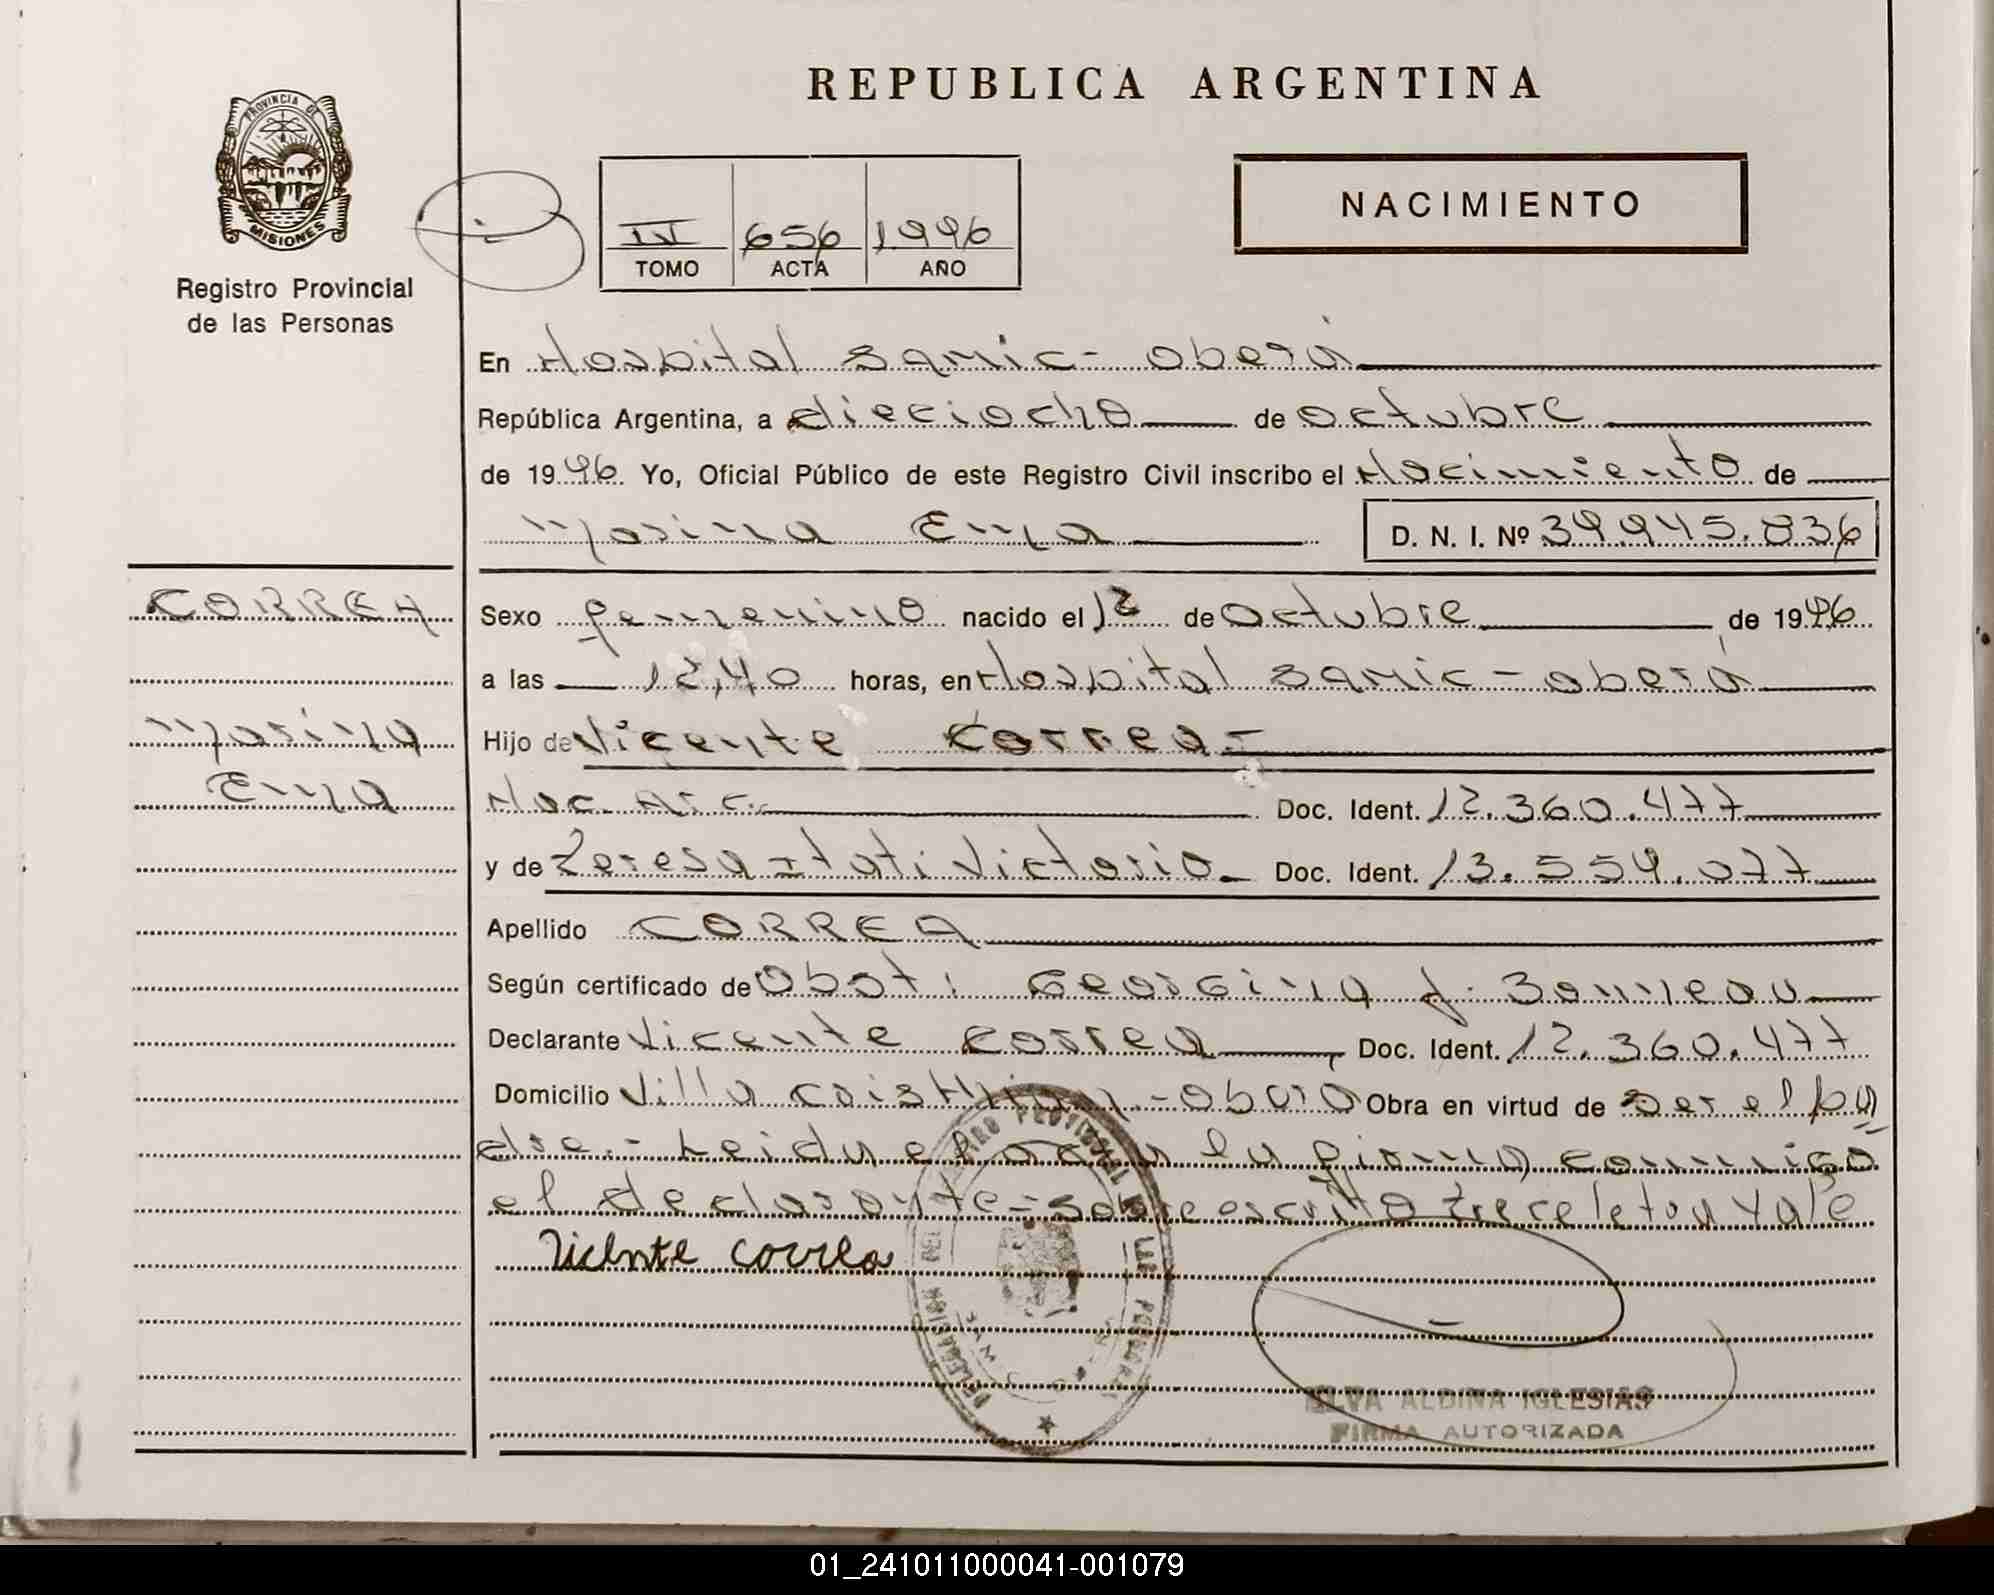 REPUBLICA ARGENTINA
PROVINCIA DE
MISIONES
Registro Provincial
de las Personas
NACIMIENTO
IV 656 1996
TOMO ACTA AÑO
En Hospital Samic - Oberá
República Argentina, a dieciocho de octubre
de 1996 Yo, Oficial Público de este Registro Civil inscribo el Nacimiento de
Marina Ema D. N. I. Nº 39.945.836
CORREA
Marina
Ema
Sexo femenino nacido el 13 de Octubre de 1996
a las 12,40 horas, en Hospital Samic - Oberá
Hijo de Vicente Correa -
Nac. Arg. Doc. Ident. 12.360.477
y de Teresa Itati Victoria Doc. Ident. 13.559.077
Apellido CORREA
Según certificado de Obst: Georgina J.
Declarante Vicente Correa, Doc. Ident. 12.360.477
Domicilio Villa Cristhian - Oberá Obra en virtud de ser el pa
dre. - Leida el acta la firma conmigo
el declarante - Sobre escrito trece letra Vale
Vicente Correa
DELEGACION DEL REGISTRO PROVINCIAL DE LAS PERSONAS
ELVA ALDINA IGLESIAS
FIRMA AUTORIZADA
01_241011000041-001079